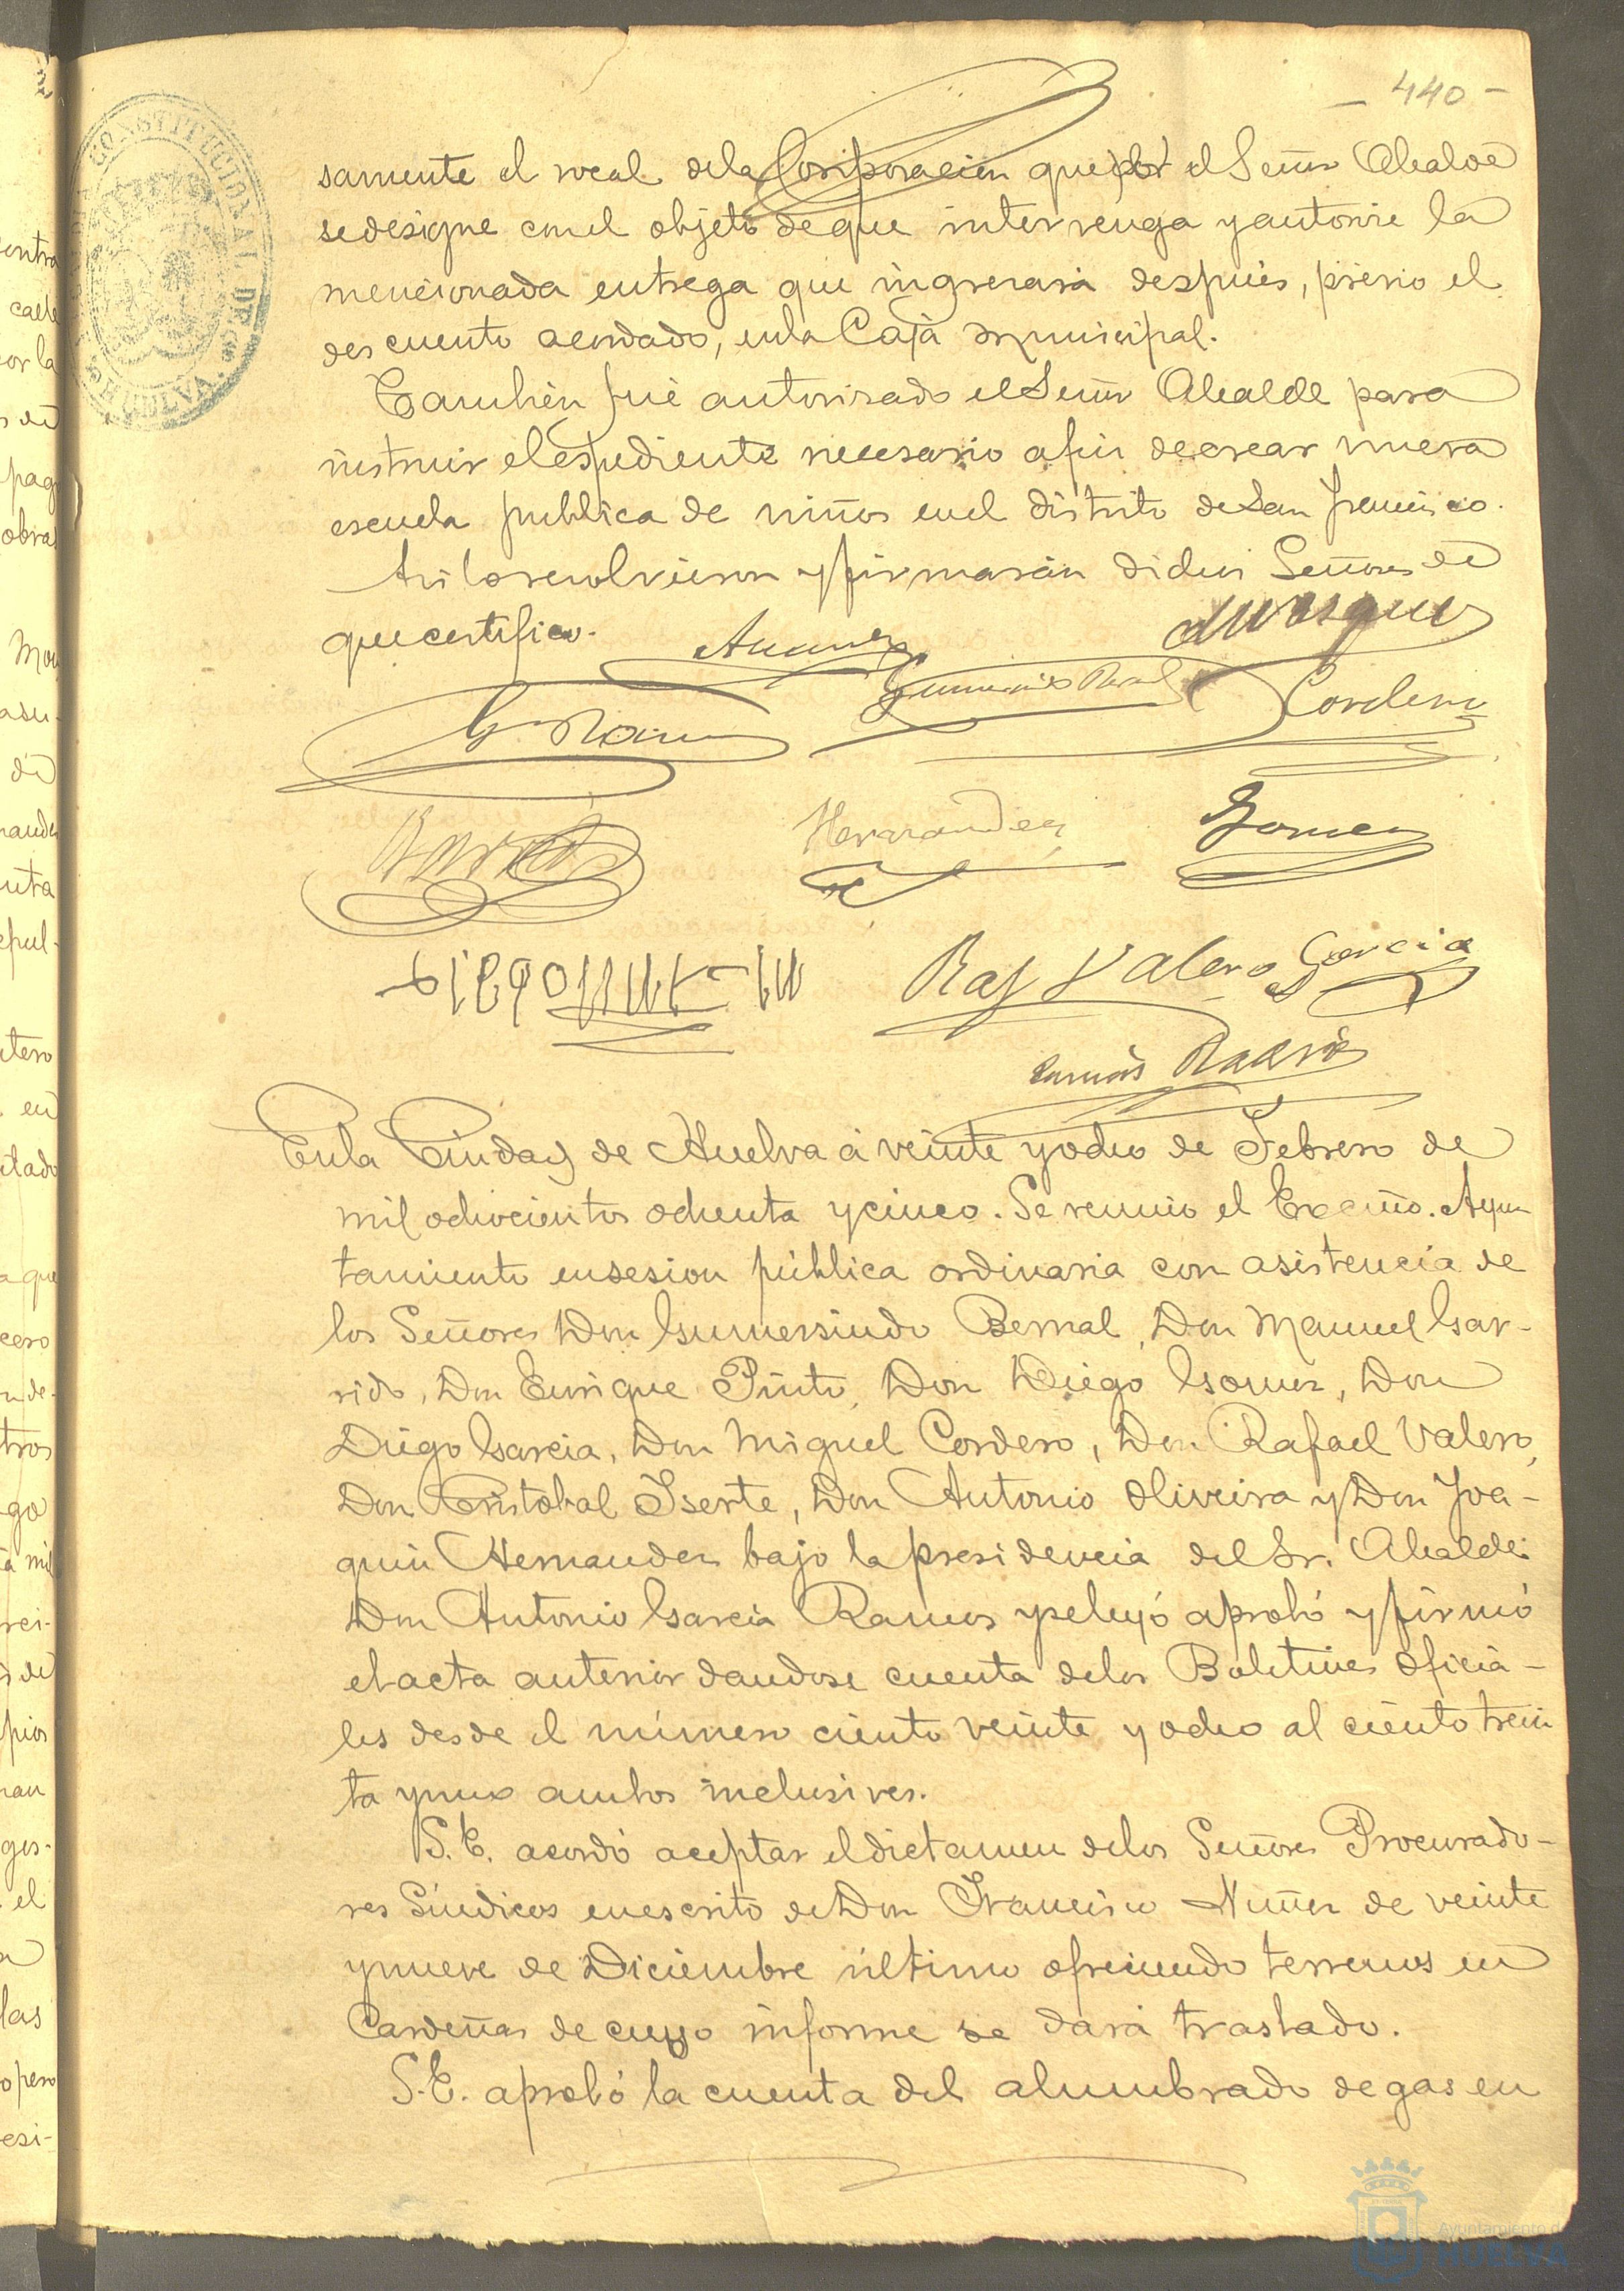 - 440 -
samente el vocal de la Corporacion que por el Señor Alcalde
se designe con el objeto de que intervenga y autorice la
mencionada entrega que ingresará después, previo el
descuento acordado, en la Caja Municipal.
Tambien fué autorizado el Señor Alcalde para
instruir el espediente necesario a fin de crear nueva
escuela publica de niños en el distrito de San Francisco.
Asi lo resolvieron y firmarán dichos Señores de
que certifico.
Cordero
Hernandez
Gomez
Raf Valero Garcia
En la Ciudad de Huelva á veinte y ocho de Febrero de
mil ochocientos ochenta y cinco. Se reunio el Excmo. Ayun
tamiento en sesion pública ordinaria con asistencia de
los Señores Don Gumersindo Bernal, Don Manuel Gar-
rido, Don Enrique Pinto, Don Diego Gomez, Don
Diego Garcia, Don Miguel Cordero, Don Rafael Valero,
Don Cristobal Iserte, Don Antonio Oliveira y Don Joa-
quin Hernandez bajo la presidencia del Sr. Alcalde
Don Antonio Garcia Ramos y se leyó aprobó y firmó
el acta anterior dandose cuenta de los Boletines oficia-
les desde el número ciento veinte y ocho al ciento trein
ta y uno ambos inclusives.
S. E. acordó aceptar el dictamen de los Señores Procurado-
res Síndicos en escrito de Don Francisco Nuñez de veinte
y nueve de Diciembre último ofreciendo terrenos en
Cardeñas de cuyo informe se dará traslado.
S. E. aprobó la cuenta del alumbrado de gas en
CONSTITUCIONAL DE
HUELVA
Ayuntamiento de
HUELVA